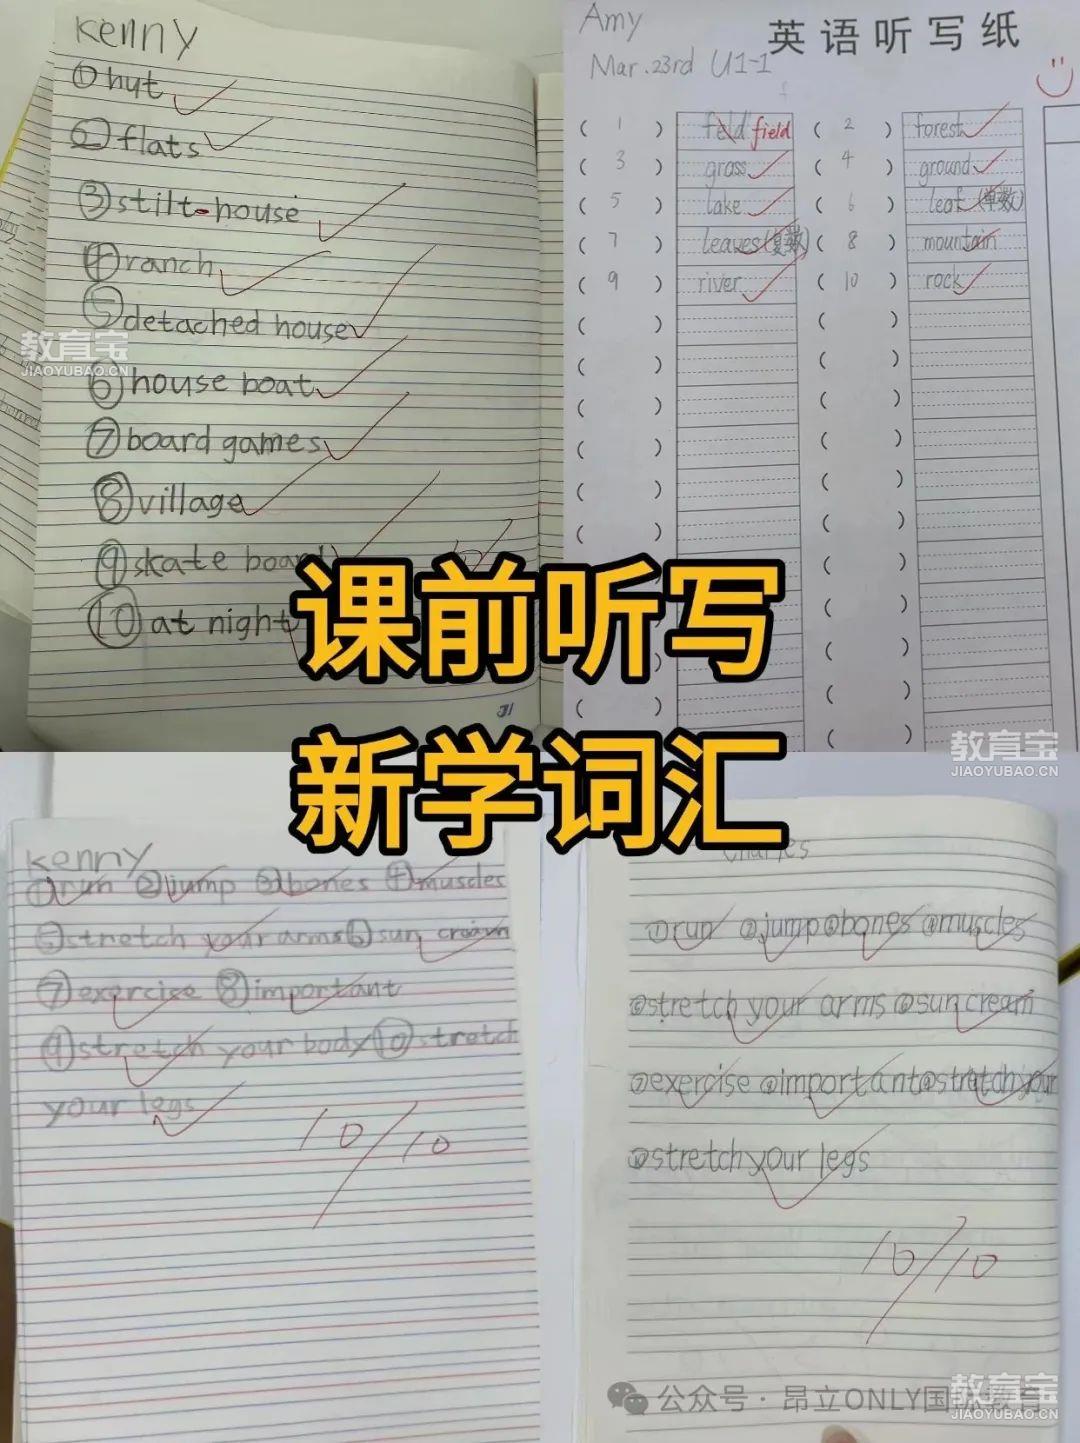 Kenny
①hut
②flats
③stilt-house
④ranch
⑤detached house
⑥house boat
⑦board games
⑧village
⑨skate board
⑩at night
31
Amy
英语听写纸
Mar.23rd U1-1
( 1 ) feld field ( 2 ) forest
( 3 ) grass ( 4 ) ground
( 5 ) lake ( 6 ) leaf (单数)
( 7 ) leaves (复数) ( 8 ) mountain
( 9 ) river ( 10 ) rock
教育宝
JIAOYUBAO.CN
课前听写
新学词汇
教育宝
JIAOYUBAO.CN
Kenny
①run ②jump ③bones ④muscles
⑤stretch your arms⑥sun cream
⑦exercise ⑧important
⑨stretch your body⑩stretch
your legs
10/10
Charles
①run ②jump③bones④muscles
⑤stretch your arms⑥sun cream
⑦exercise⑧important⑨stretch your
⑩stretch your legs
10/10
公众号·昂立ONLY国际教育
教育宝
JIAOYUBAO.CN